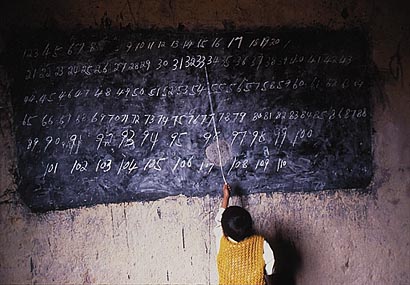 1 2 3 4 5 6 7 8 9 10 11 12 13 14 15 16 17 18 19 20
21 22 23 24 25 26 27 28 29 30 31 32 33 34 35 36 37 38 39 40 41 42 43
44 45 46 47 48 49 50 51 52 53 54 55 56 57 58 59 60
65 66 67 68 69 70 71 72 73 74 75 76 77 78 79 80 81 82 83 84 85 86 87 88
89 90 91 92 93 94 95 96 97 98 99 100
101 102 103 104 105 106 107 108 109 110